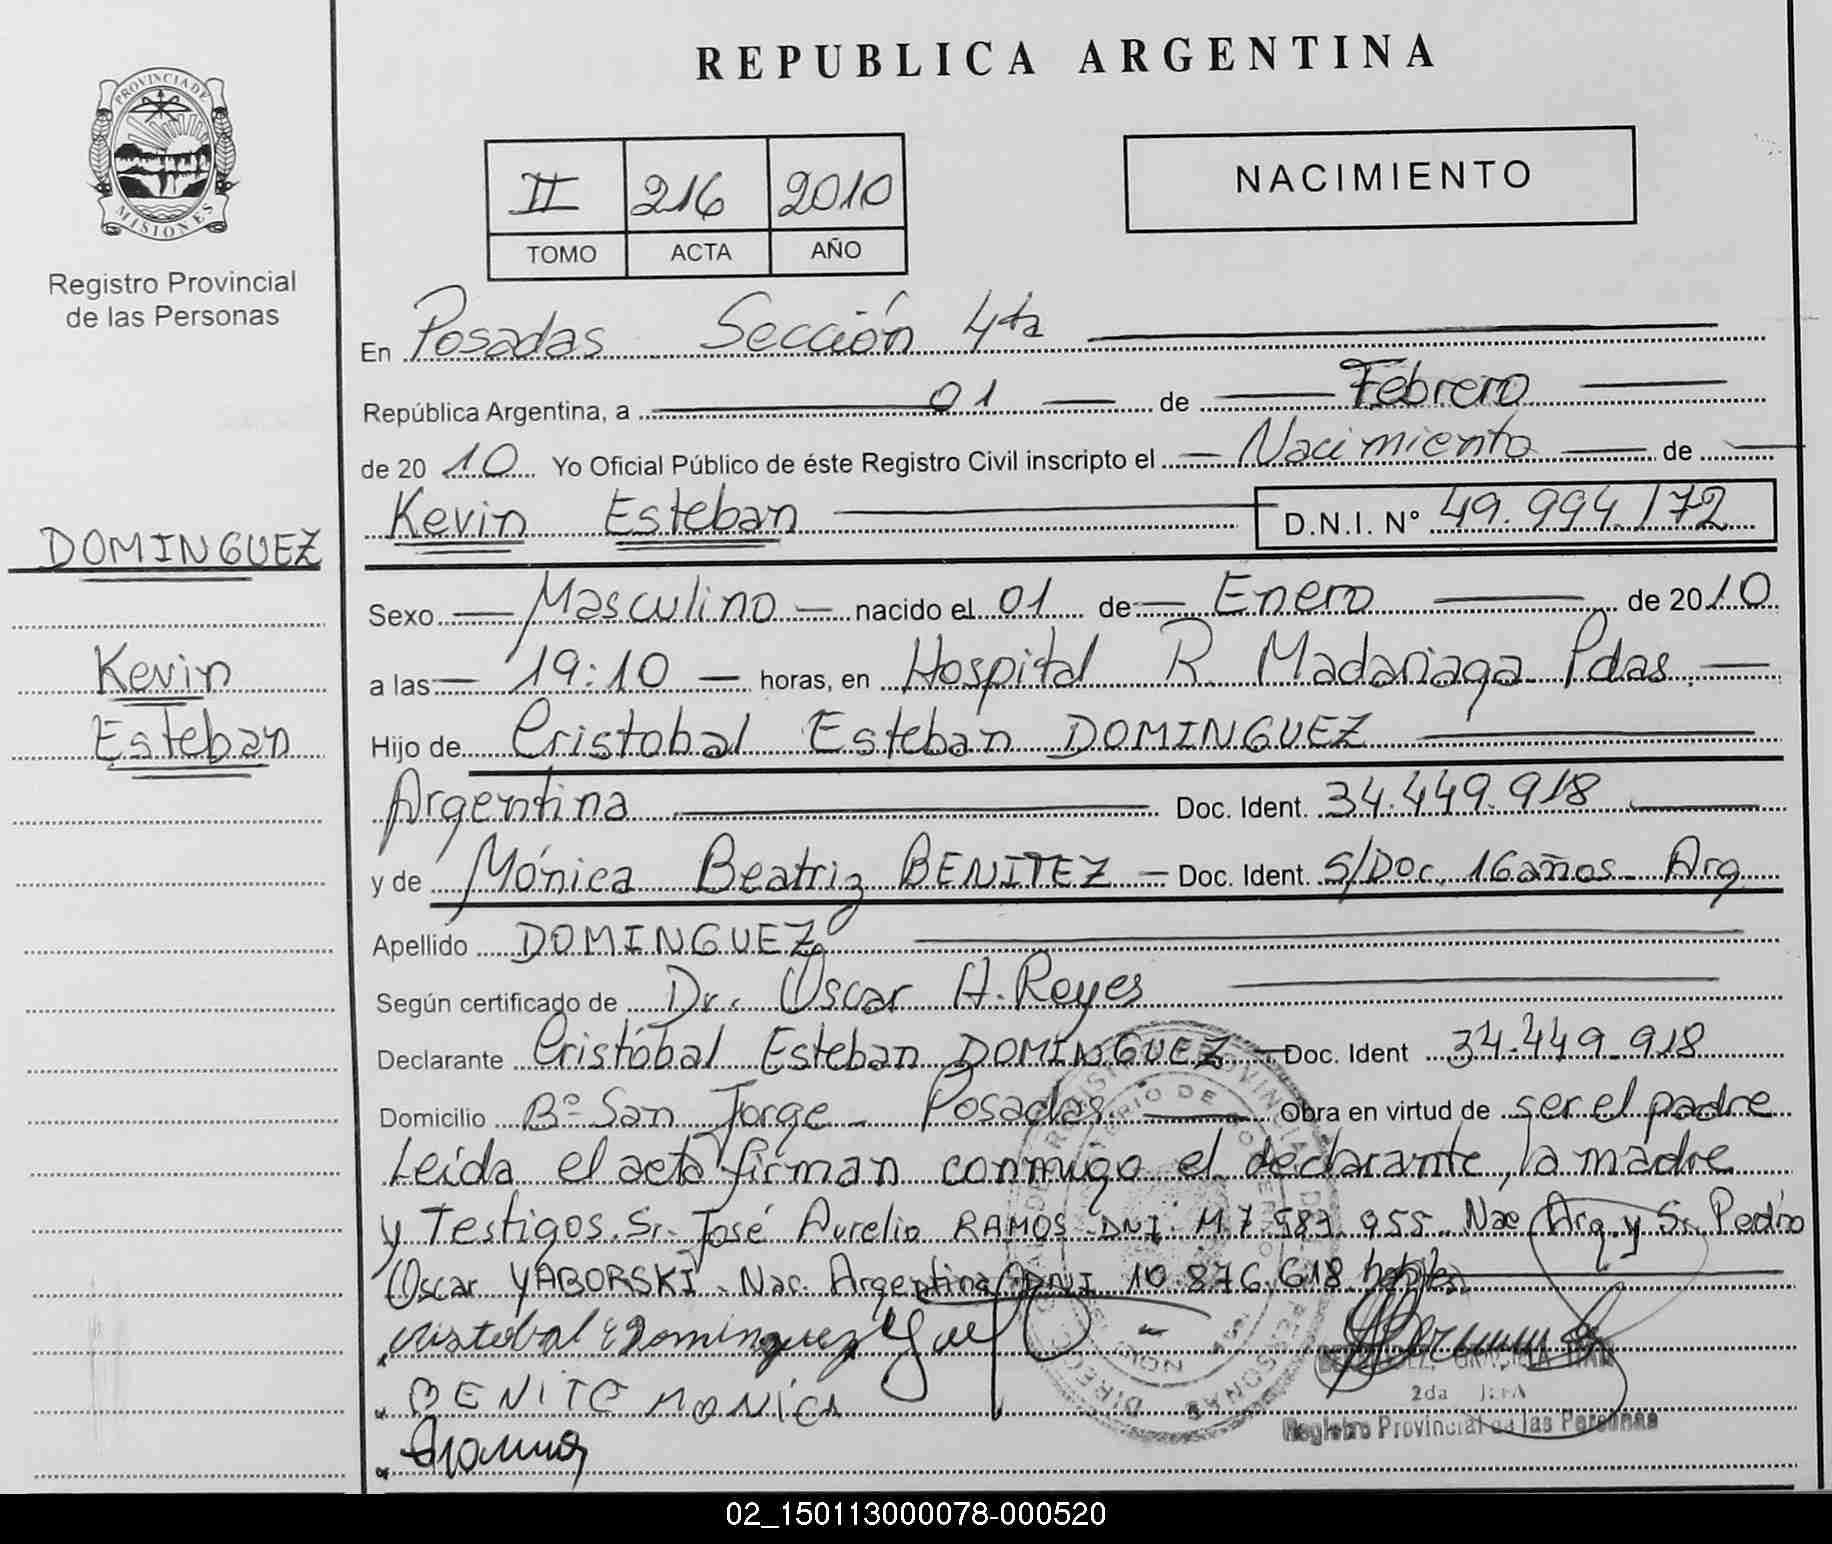 REPUBLICA ARGENTINA
PROVINCIA DE
MISIONES
Registro Provincial
de las Personas
II 216 2010
TOMO ACTA AÑO
NACIMIENTO
En Posadas Sección 4ta
República Argentina, a 01 de Febrero
de 2010 Yo Oficial Público de éste Registro Civil inscripto el Nacimiento de
Kevin Esteban D.N.I. Nº 49.994.172
DOMINGUEZ
Kevin
Esteban
Sexo Masculino nacido el 01 de Enero de 2010
a las 19:10 horas, en Hospital R. Madariaga Pdas.
Hijo de Cristobal Esteban DOMINGUEZ
Argentina Doc. Ident. 34.449.918
y de Mónica Beatriz BENITEZ Doc. Ident. S/Doc. 16 años. Arg
Apellido DOMINGUEZ
Según certificado de Dr. Oscar H. Reyes
Declarante Cristóbal Esteban DOMINGUEZ Doc. Ident 34.449.918
Domicilio Bº San Jorge - Posadas. Obra en virtud de ser el padre
Leída el acta firman conmigo el declarante, la madre
y Testigos. Sr. José Aurelio RAMOS DNI. M.7.587.955. Nac. Arg. y Sr. Pedro
Oscar YABORSKI. Nac. Argentina DNI 10.876.618
cristobal E Dominguez
BENITE MONICA
2da JEFA
Registro Provincial de las Personas
02_150113000078-000520